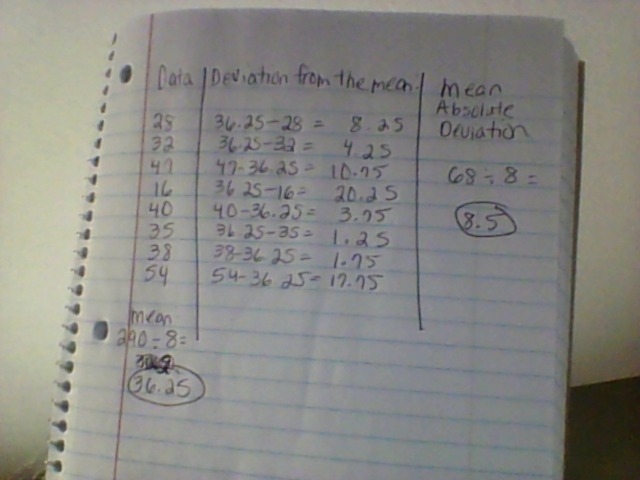 Data | Deviation from the mean | Mean Absolute Deviation
28 36.25-28 = 8.25
32 36.25-32 = 4.25
47 47-36.25 = 10.75
16 36.25-16 = 20.25
40 40-36.25 = 3.75
35 36.25-35 = 1.25
38 38-36.25 = 1.75
54 54-36.25 = 17.75
68 ÷ 8 =
8.5
mean
290 ÷ 8 =
36.25